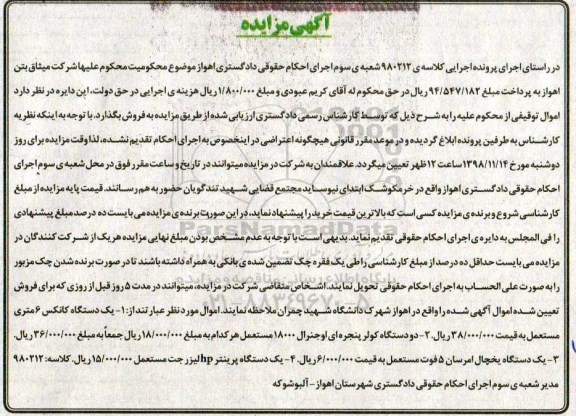 آگهی مزایده
در راستای اجرای پرونده اجرایی کلاسه ی ۹۸۰۲۱۲ شعبه ی سوم اجرای احکام حقوقی دادگستری اهواز موضوع محکومیت محکوم علیها شرکت میثاق بتن
اهواز به پرداخت مبلغ ۹۴/۵۴۷/۱۸۲ ریال در حق محکوم له آقای کریم عبودی و مبلغ ۱/۸۰۰/۰۰۰ ریال هزینه ی اجرایی در حق دولت، این دایره در نظر دارد
اموال توقیفی از محکوم علیه را به شرح ذیل که توسط کارشناس رسمی دادگستری ارزیابی شده از طریق مزایده به فروش بگذارد. با توجه به اینکه نظریه
کارشناس به طرفین پرونده ابلاغ گردیده و در موعد مقرر قانونی هیچگونه اعتراضی در اینخصوص به اجرای احکام تقدیم نشده، لذا وقت مزایده برای روز
دوشنبه مورخ ۱۳۹۸/۱۱/۱۴ ساعت ۱۲ ظهر تعیین میگردد. علاقمندان به شرکت در مزایده میتوانند در تاریخ و ساعت مقرر فوق در محل شعبه ی سوم اجرای
احکام حقوقی دادگستری اهواز واقع در خرمکوشک ابتدای نیوساید مجتمع قضایی شهید تندگویان حضور به هم رسانند. قیمت پایه مزایده از مبلغ
کارشناسی شروع و برنده ی مزایده کسی است که بالاترین قیمت خرید را پیشنهاد نماید، در این صورت برنده ی مزایده می بایست ده درصد مبلغ پیشنهادی
را فی المجلس به دایره ی اجرای احکام حقوقی تقدیم نماید. بدیهی است با توجه به عدم مشخص بودن مبلغ نهایی مزایده هر یک از شرکت کنندگان در
مزایده می بایست حداقل ده درصد از مبلغ کارشناسی را طی یک فقره چک تضمین شده ی بانکی به همراه داشته باشند تا در صورت برنده شدن چک مزبور
را به صورت علی الحساب به اجرای احکام حقوقی تحویل نمایند. اشخاص متقاضی شرکت در مزایده، میتوانند در مدت ۵ روز قبل از روزی که برای فروش
تعیین شده اموال آگهی شده را واقع در اهواز شهرک دانشگاه شهید چمران ملاحظه نمایند. اموال مورد نظر عبارتند از: ۱- یک دستگاه کانکس ۶ متری
مستعمل به قیمت ۳۸/۰۰۰/۰۰۰ ریال. ۲- دو دستگاه کولر پنجره ای اوجنرال ۱۸۰۰۰ مستعمل هر کدام به مبلغ ۱۸/۰۰۰/۰۰۰ ریال جمعاً به مبلغ ۳۶/۰۰۰/۰۰۰ ریال.
۳- یک دستگاه یخچال امرسان ۵ فوت مستعمل به قیمت ۶/۰۰۰/۰۰۰ ریال. ۴- یک دستگاه پرینتر hp لیزر جت مستعمل ۱۵/۰۰۰/۰۰۰ ریال. کلاسه: ۹۸۰۲۱۲
مدیر شعبه ی سوم اجرای احکام حقوقی دادگستری شهرستان اهواز - آلبوشوکه
ParsNamadData
پایگاه اطلاع رسانی مناقصه و مزایده
۰۲۱-۸۸۳۴۹۶۷۰-۵